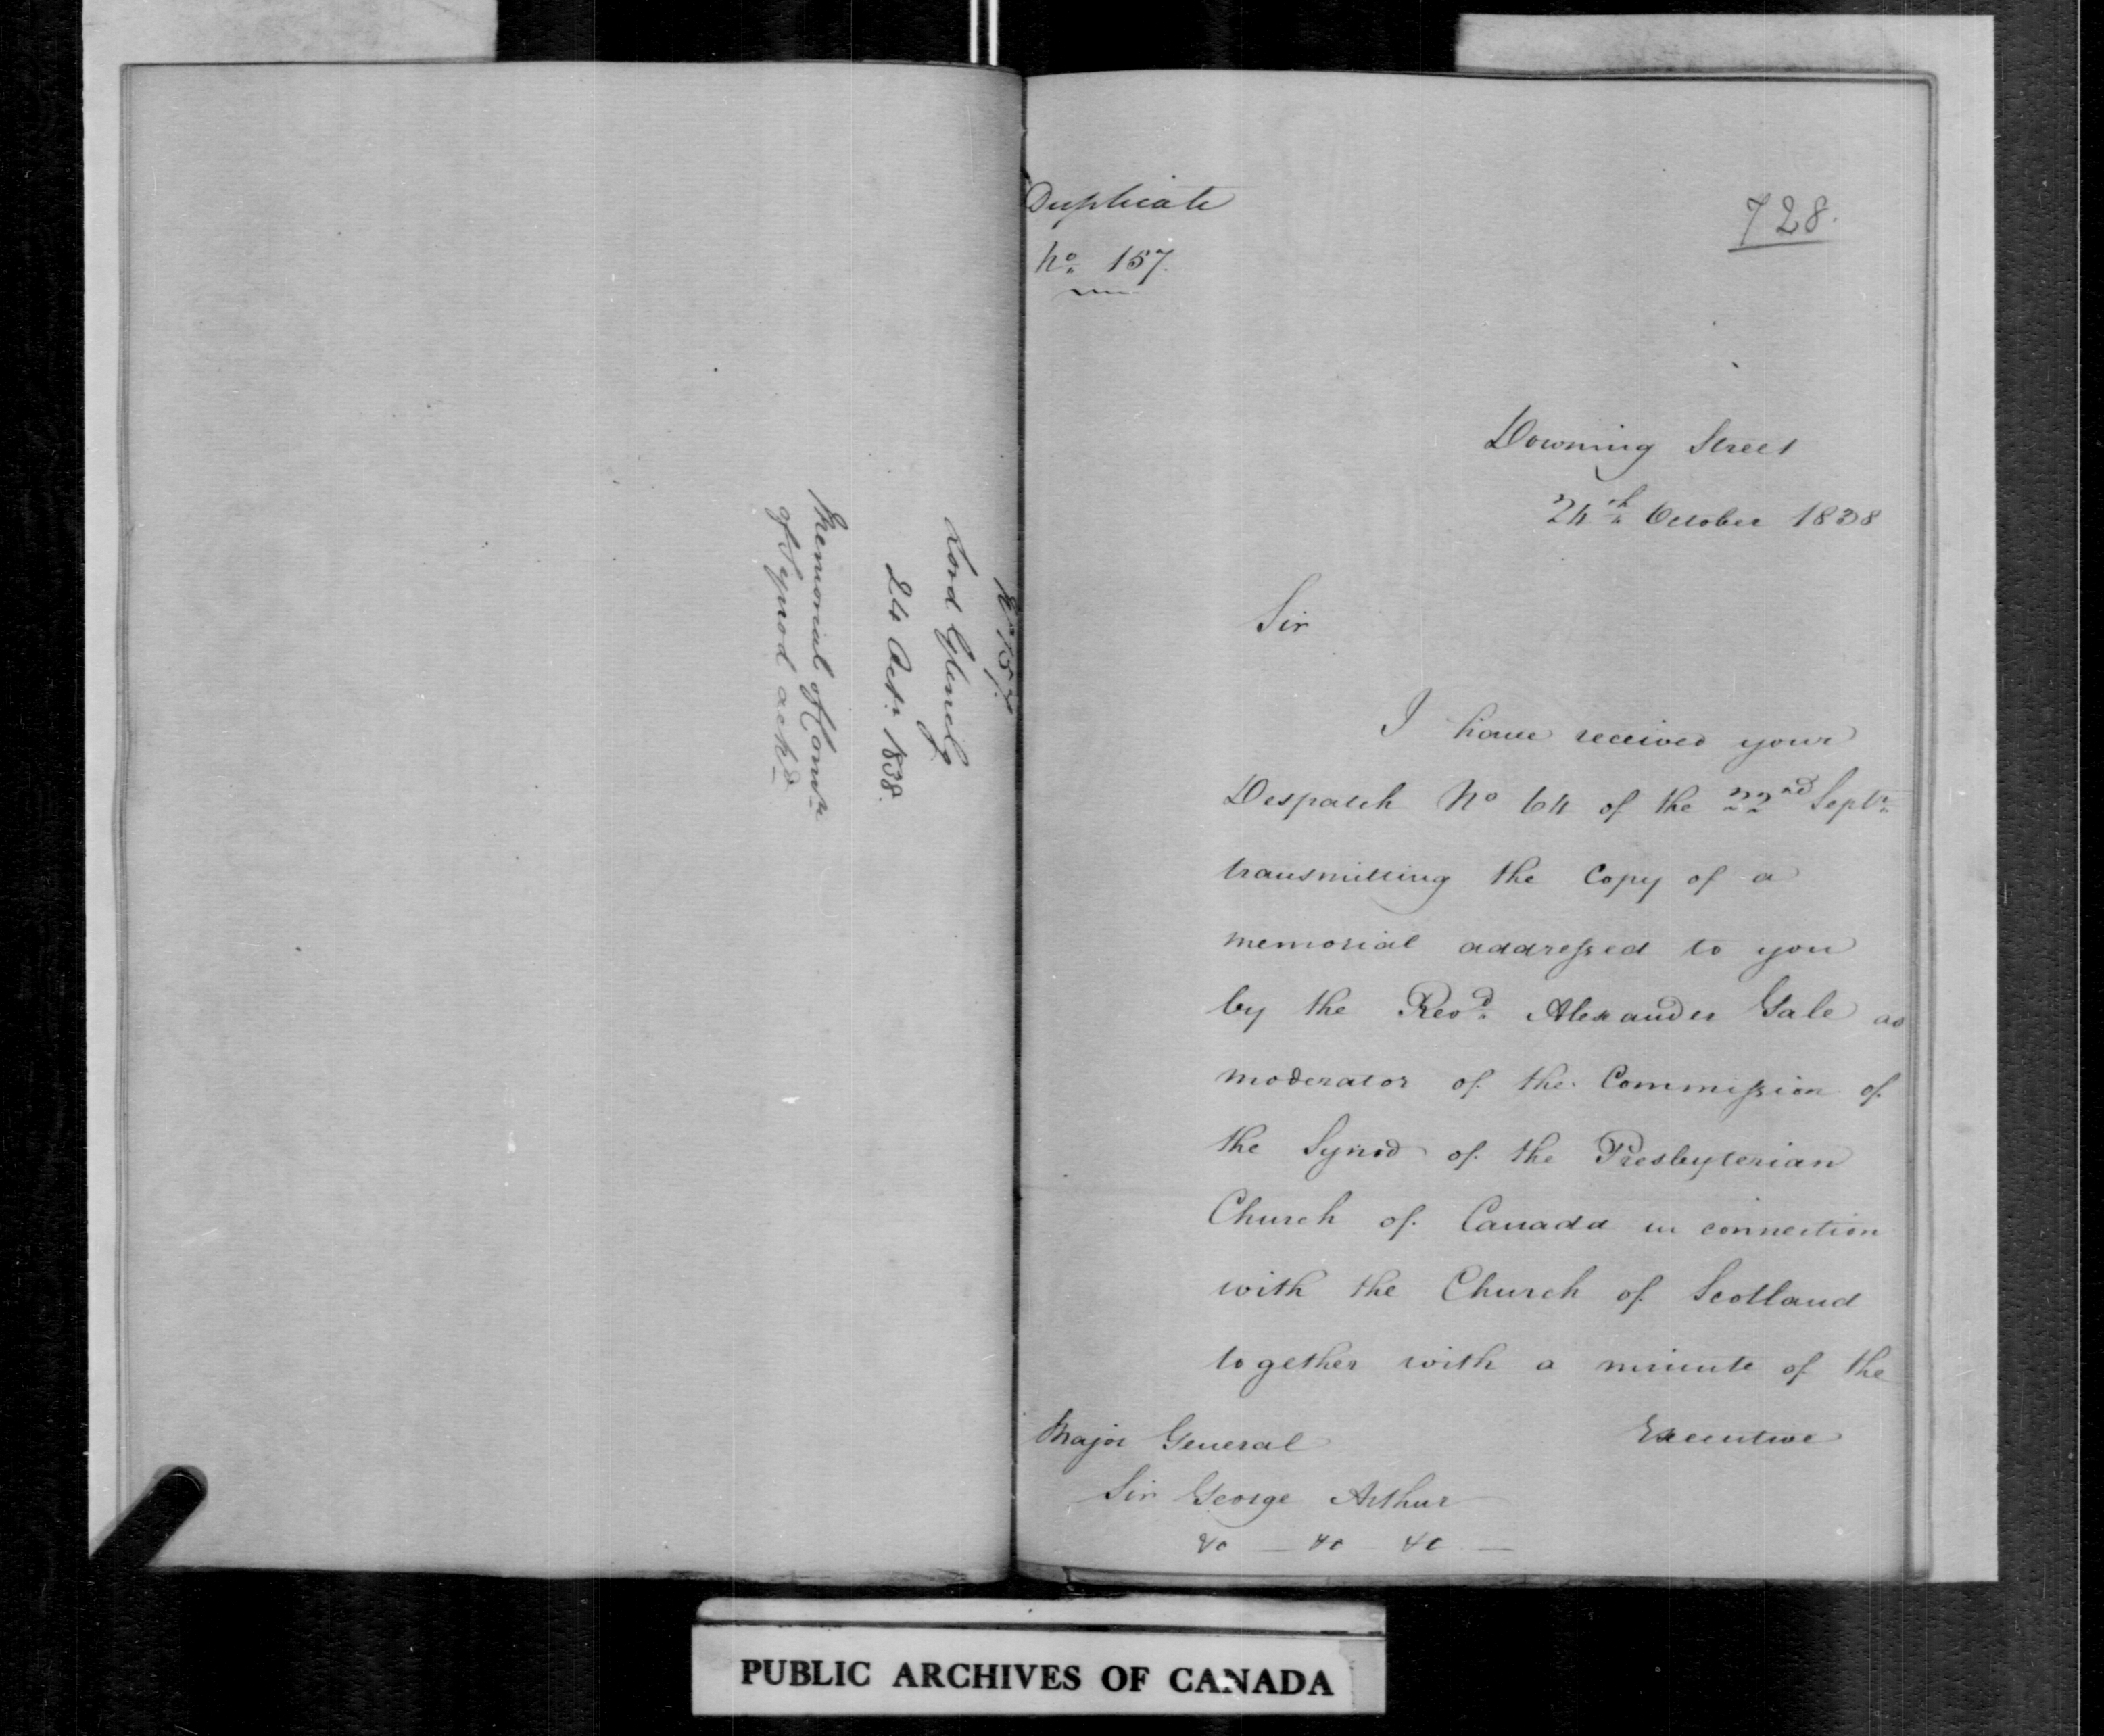 No 157.
Lord Glenelg
24 Octr. 1838.
Memorial of Comn
of Synod ackd
Duplicate
No. 157.
728.
Downing Street
24th October 1838
Sir
I have received your
Despatch No 64 of the 22nd Septr.
transmitting the Copy of a
memorial addressed to you
by the Revd. Alexander Gale as
moderator of the Commission of
the Synod of the Presbyterian
Church of Canada in connection
with the Church of Scotland
together with a minute of the
Executive
Major General
Sir George Arthur
PUBLIC ARCHIVES OF CANADA